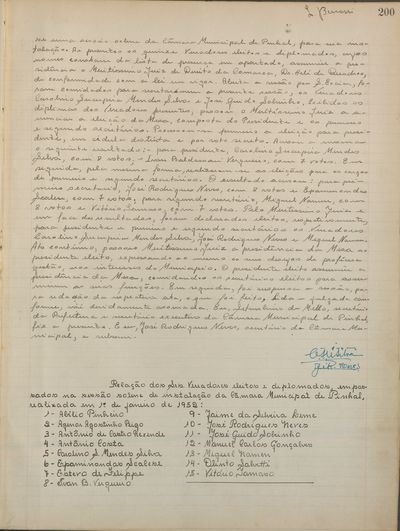 200
se uma sessão solene da Câmara Municipal de Pinhal, para sua ins-
talação. Às presentes os quinze Vereadores eleitos e diplomados, cujos
nomes constam da lista de presença em apartado, assumiu a pre-
sidência o Meritíssimo Juiz de Direito da Comarca, Dr. Heli de Quadros,
de conformidade com a lei em vigor. Aberta a sessão por S. Excia., fo-
ram convidados para secretariarem a presente sessão, os Vereadores
Carolino Jacequim Mendes Silva e José Guido Sobrinho. Exibidos os
diplomas dos Vereadores presentes, passou o Meritíssimo Juiz a a-
nunciar a eleição da Mesa, composta do Presidente e os primeiro
e segundo secretários. Processou-se primeiro a eleição para presi-
dente, em cédula distinta e por voto secreto. Acusou a mesma
o seguinte resultado: para presidente, Carolino Mendes
Silva, com 8 votos, e Ivan Baldassari Vergueiro, com 7 votos. Em
seguida, pela mesma forma, realizaram-se as eleições para os cargos
de primeiro e segundo secretários. O resultado acusou: para pri-
meiro secretário, José Rodrigues Neves, com 8 votos e Epaminondas
Scalese, com 7 votos; para segundo secretário, Miguel Namen, com
8 votos e Vitório Tamaso, com 7 votos. Pelo Meritíssimo Juiz e
em face dos resultados, foram declarados eleitos, respectivamente,
para presidente e primeiro e segundo secretários os Vereadores
Carolino Mendes Silva, José Rodrigues Neves e Miguel Namen.
Ato contínuo, passou o Meritíssimo Juiz a presidência da Mesa ao
presidente eleito, expressando ao mesmo os seus desejos de profícua
gestão, nos interesses do Município. O presidente eleito assumiu a
presidência da Mesa, convidando os secretários eleitos para assu-
mirem as suas funções. Em seguida, foi suspensa a sessão, pa-
ra redação da respectiva ata, o que foi feito, lida e julgada con-
forme, vai devidamente assinada. Eu, de Mello, secretário
da Prefeitura e secretário executivo da Câmara Municipal de Pinhal,
fiz a presente. E eu, José Rodrigues Neves, secretário da Câmara Mu-
nicipal, a subscrevi.
Relação dos Srs. Vereadores eleitos e diplomados, empos-
sados na sessão solene de instalação da Câmara Municipal de Pinhal,
realizada em 1º de janeiro de 1952:
1- Abílio Pinheiro
2- Agenor Agostinho Pugo
3- Antônio da Costa Rezende
4- Antônio Costa
5- Carolino J. Mendes Silva
6- Epaminondas Scalese
7- Estero de Filippe
8- Ivan B. Vergueiro
9- Jaime da Silveira Leme
10- José Rodrigues Neves
11- José Guido Sobrinho
12- Manuel Carlos Gonçalves
13- Miguel Namen
14- Olinto Salvetti
15- Vitório Tamaso